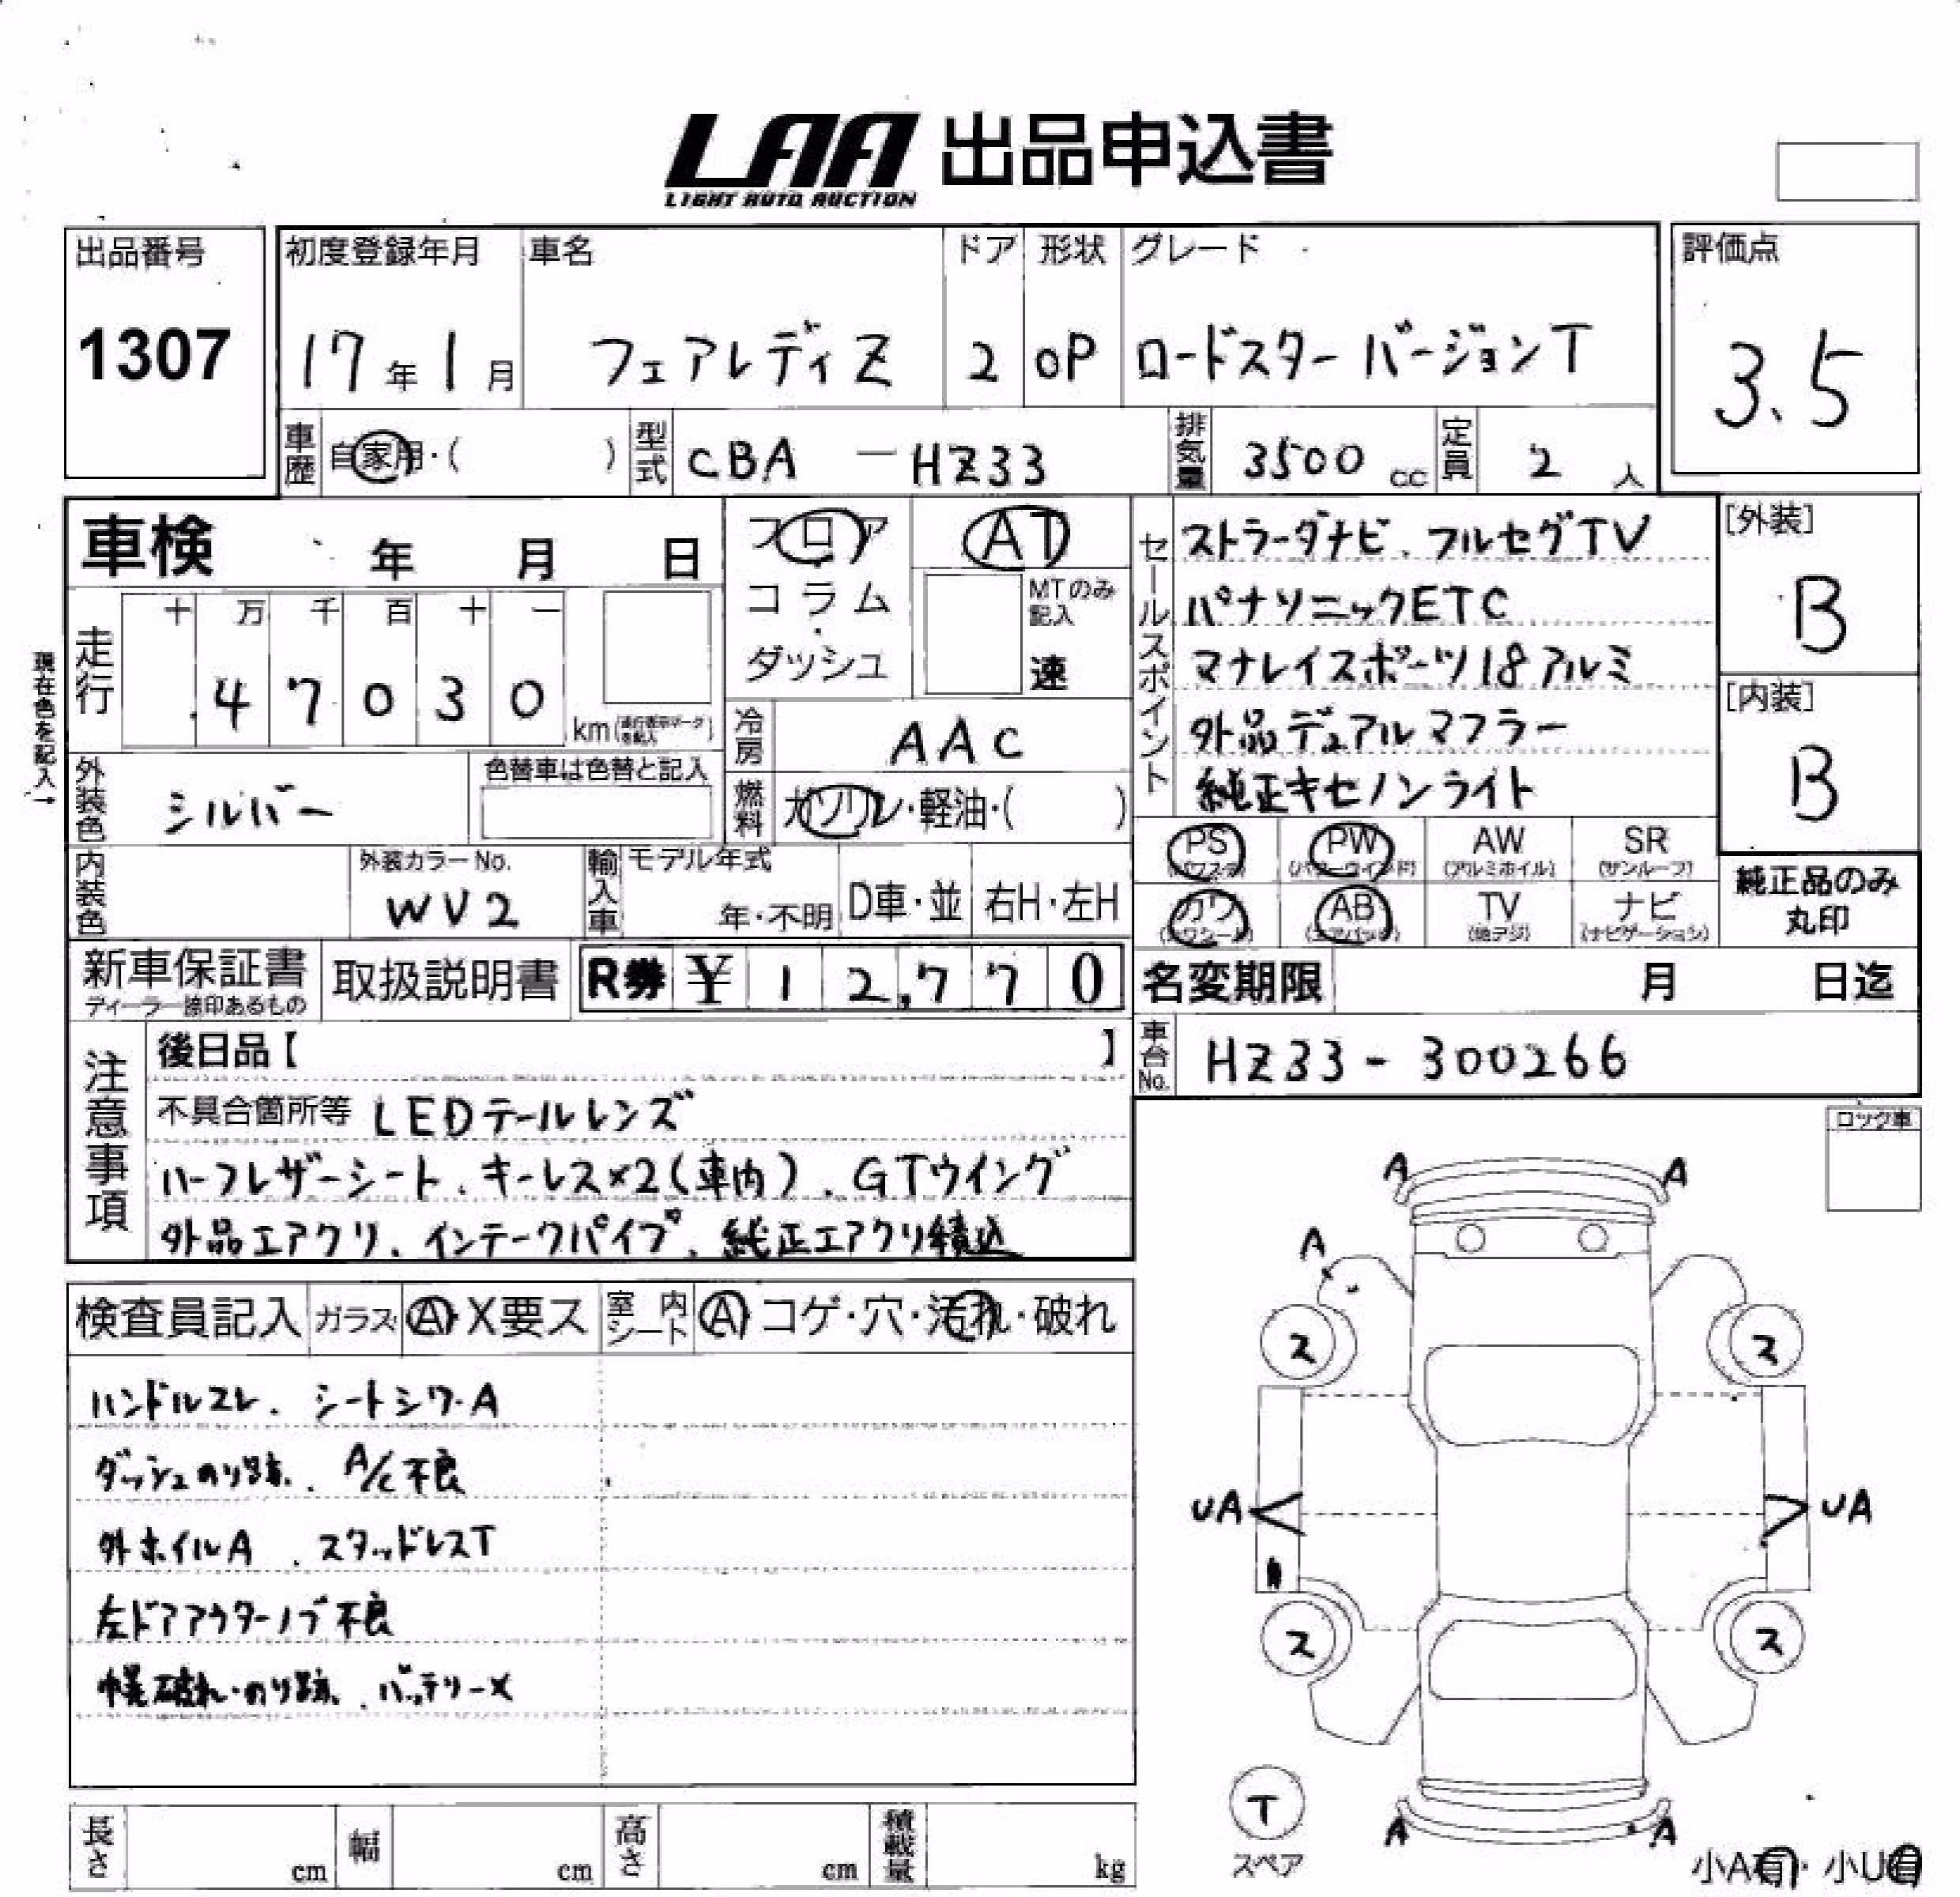 LAA 出品申込書
LIGHT AUTO AUCTION
出品番号
1307
初度登録年月 車名 ドア 形状 グレード
17年1月 フェアレディZ 2 OP ロードスター バージョンT
評価点
3.5
車歴 自家用・( ) 型式 CBA-HZ33 排気量 3500cc 定員 2人
車検 年 月 日
現在色を記入→
走行 十 万 千 百 十 一
47030 km
フロア・コラム・ダッシュ
AT
MTのみ記入
速
冷房 AAC
燃料 ガソリン・軽油・( )
セールスポイント
ストラーダナビ、フルセグTV
パナソニックETC
マナレイスポーツ18アルミ
外品デュアルマフラー
純正キセノンライト
[外装]
B
[内装]
B
外装色 シルバー
色替車は色替と記入
内装色
外装カラーNo.
WV2
輸入車 モデル年式
年・不明 D車・並 右H・左H
PS (パワステ) PW (パワーウインド) AW (アルミホイル) SR (サンルーフ)
カワ (カワシート) AB (エアバッグ) TV (地デジ) ナビ (ナビゲーション)
純正品のみ
丸印
新車保証書
ディーラー捺印あるもの
取扱説明書
R券 ¥12,770
名変期限 月 日迄
車台No. HZ33-300266
注意事項
後日品【 】
不具合箇所等 LEDテールレンズ
ハーフレザーシート、キーレス×2(車内)、GTウイング
外品エアクリ、インテークパイプ、純正エアクリ積込
ロック車
検査員記入 ガラス A・X要ス 室内シート A・コゲ・穴・汚れ・破れ
ハンドルスレ、シートシワ・A
ダッシュのり跡、A/C不良
外ホイルA、スタッドレスT
左ドアアウターノブ不良
幌破れ・のり跡、バッテリー×
A A
A
ス ス
UA UA
ス ス
T
スペア
A A
小A有・小U有
長さ cm 幅 cm 高さ cm 積載量 kg